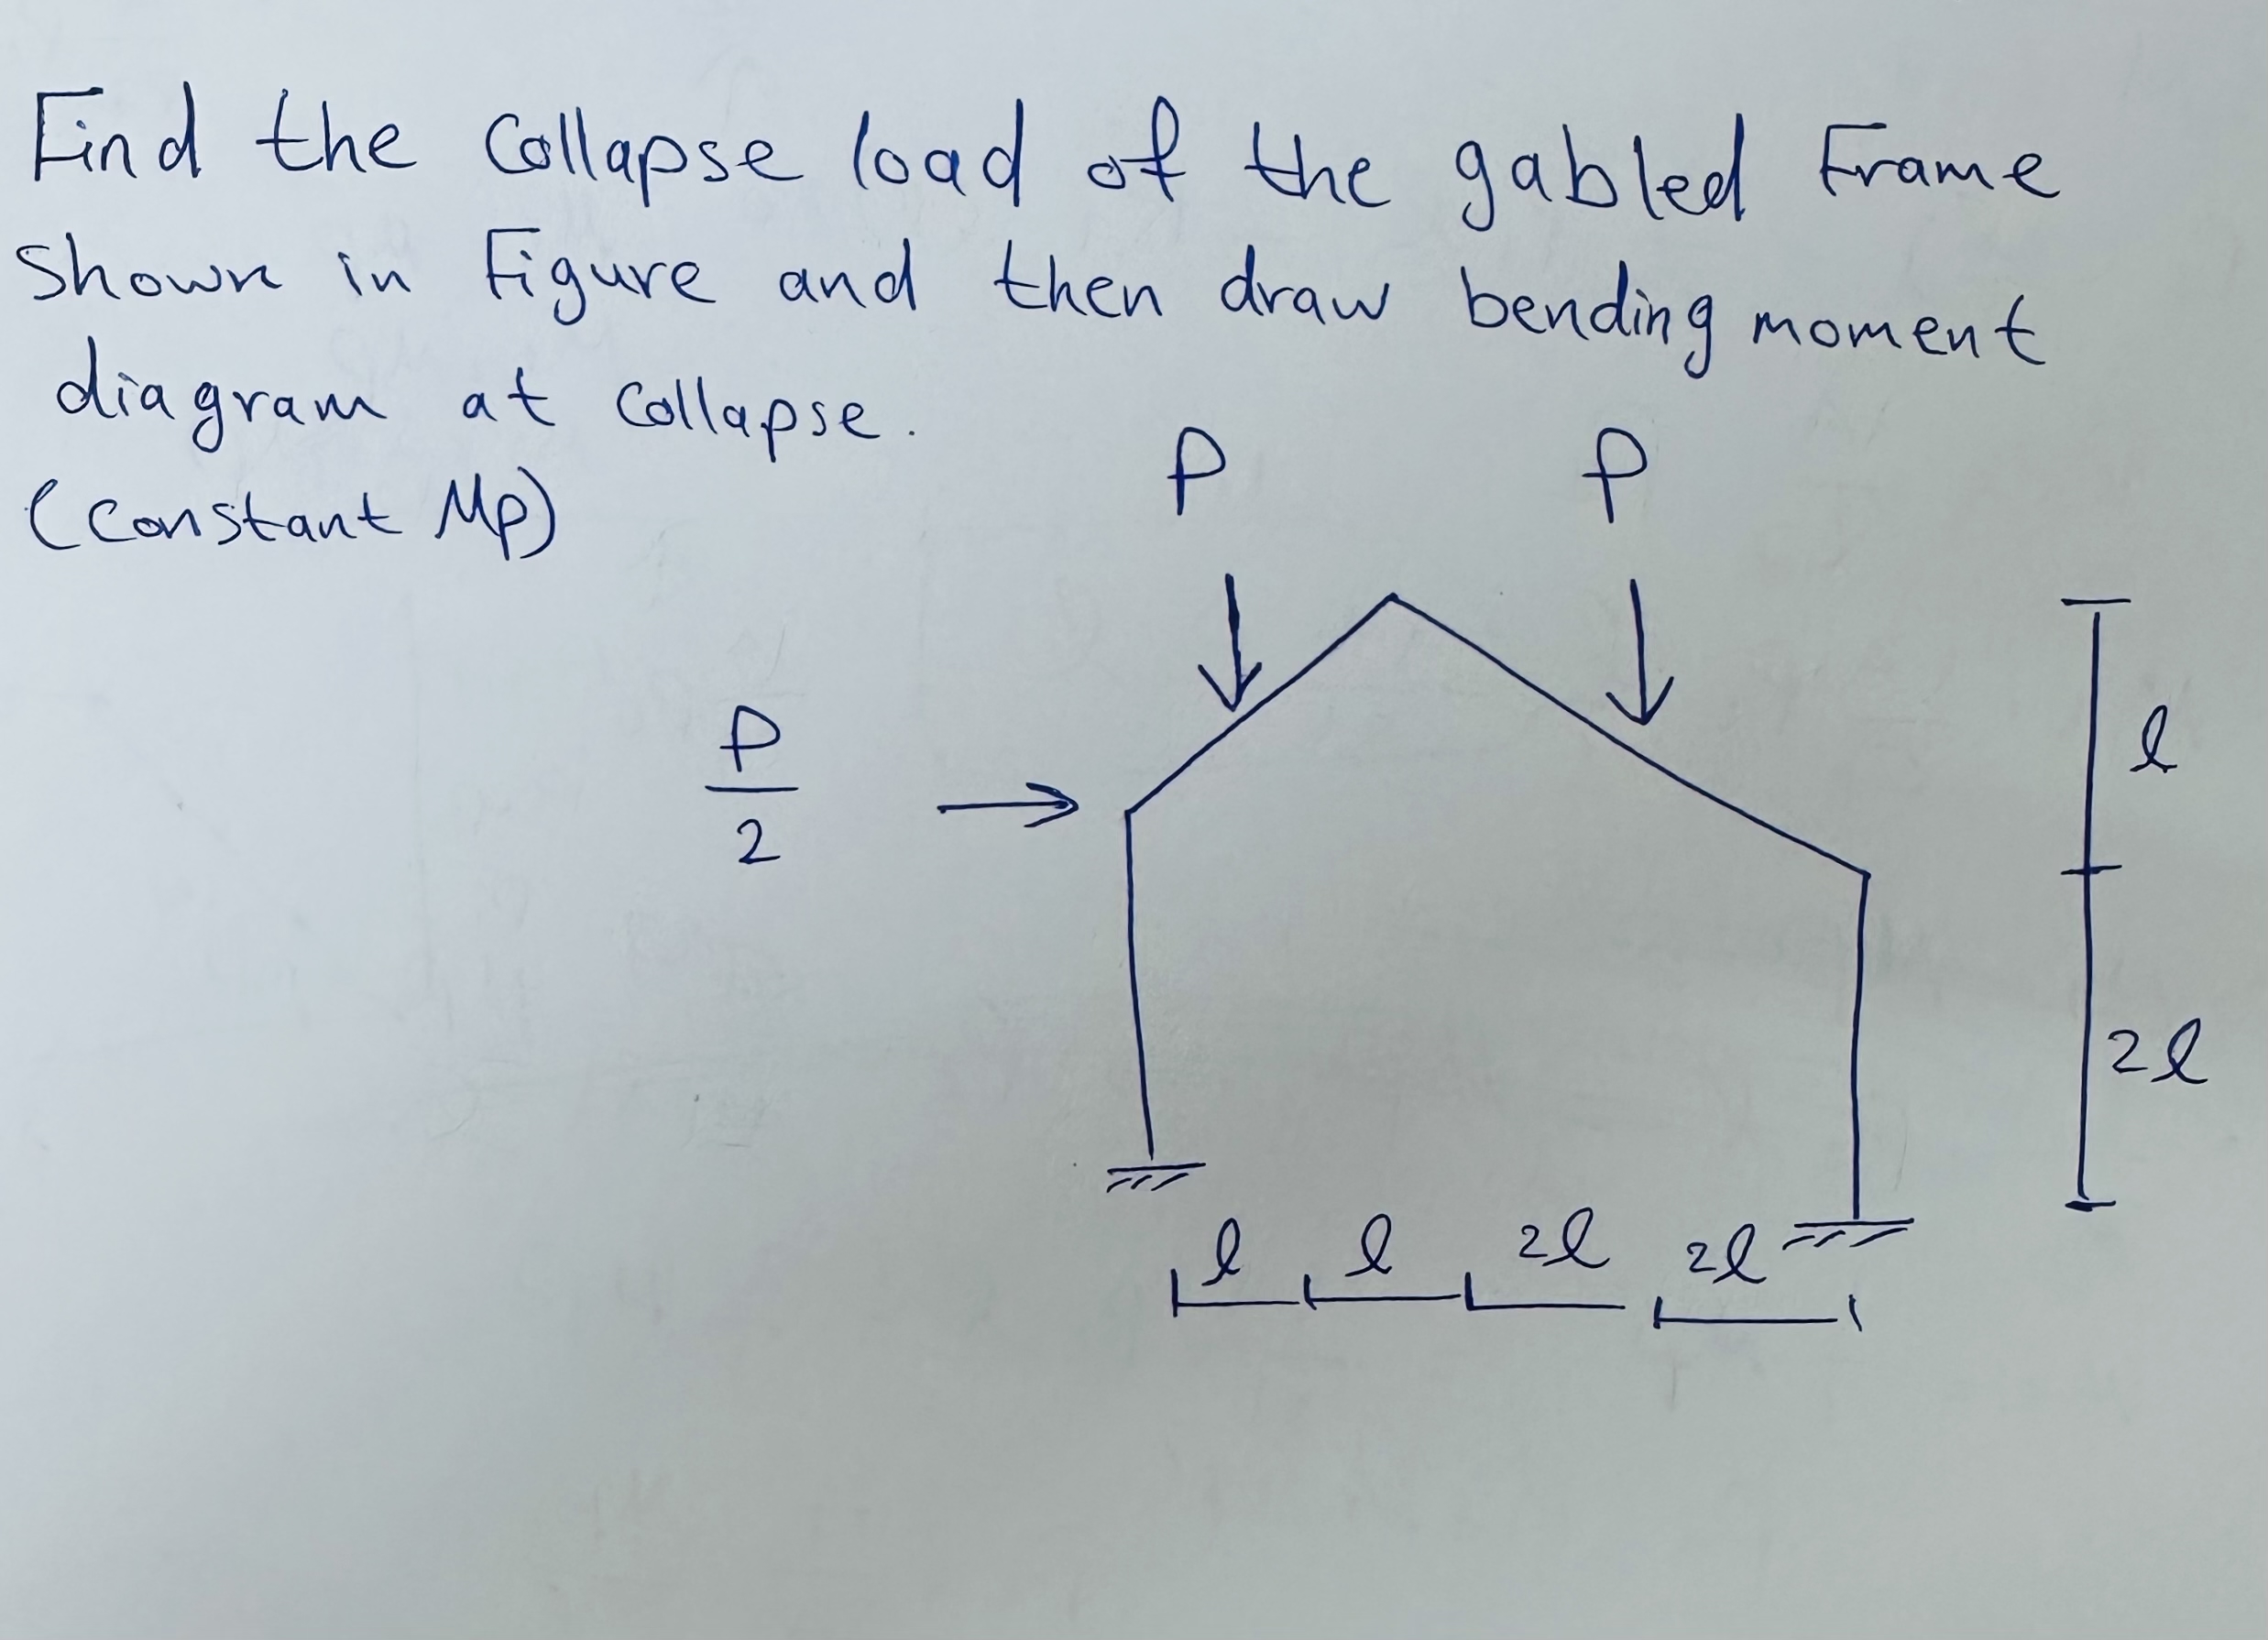 Find the Collapse load of the gabled Frame
shown in Figure and then draw bending moment
diagram at Collapse.
(Constant Mp)
P P
P
2
l
2l
l l 2l 2l